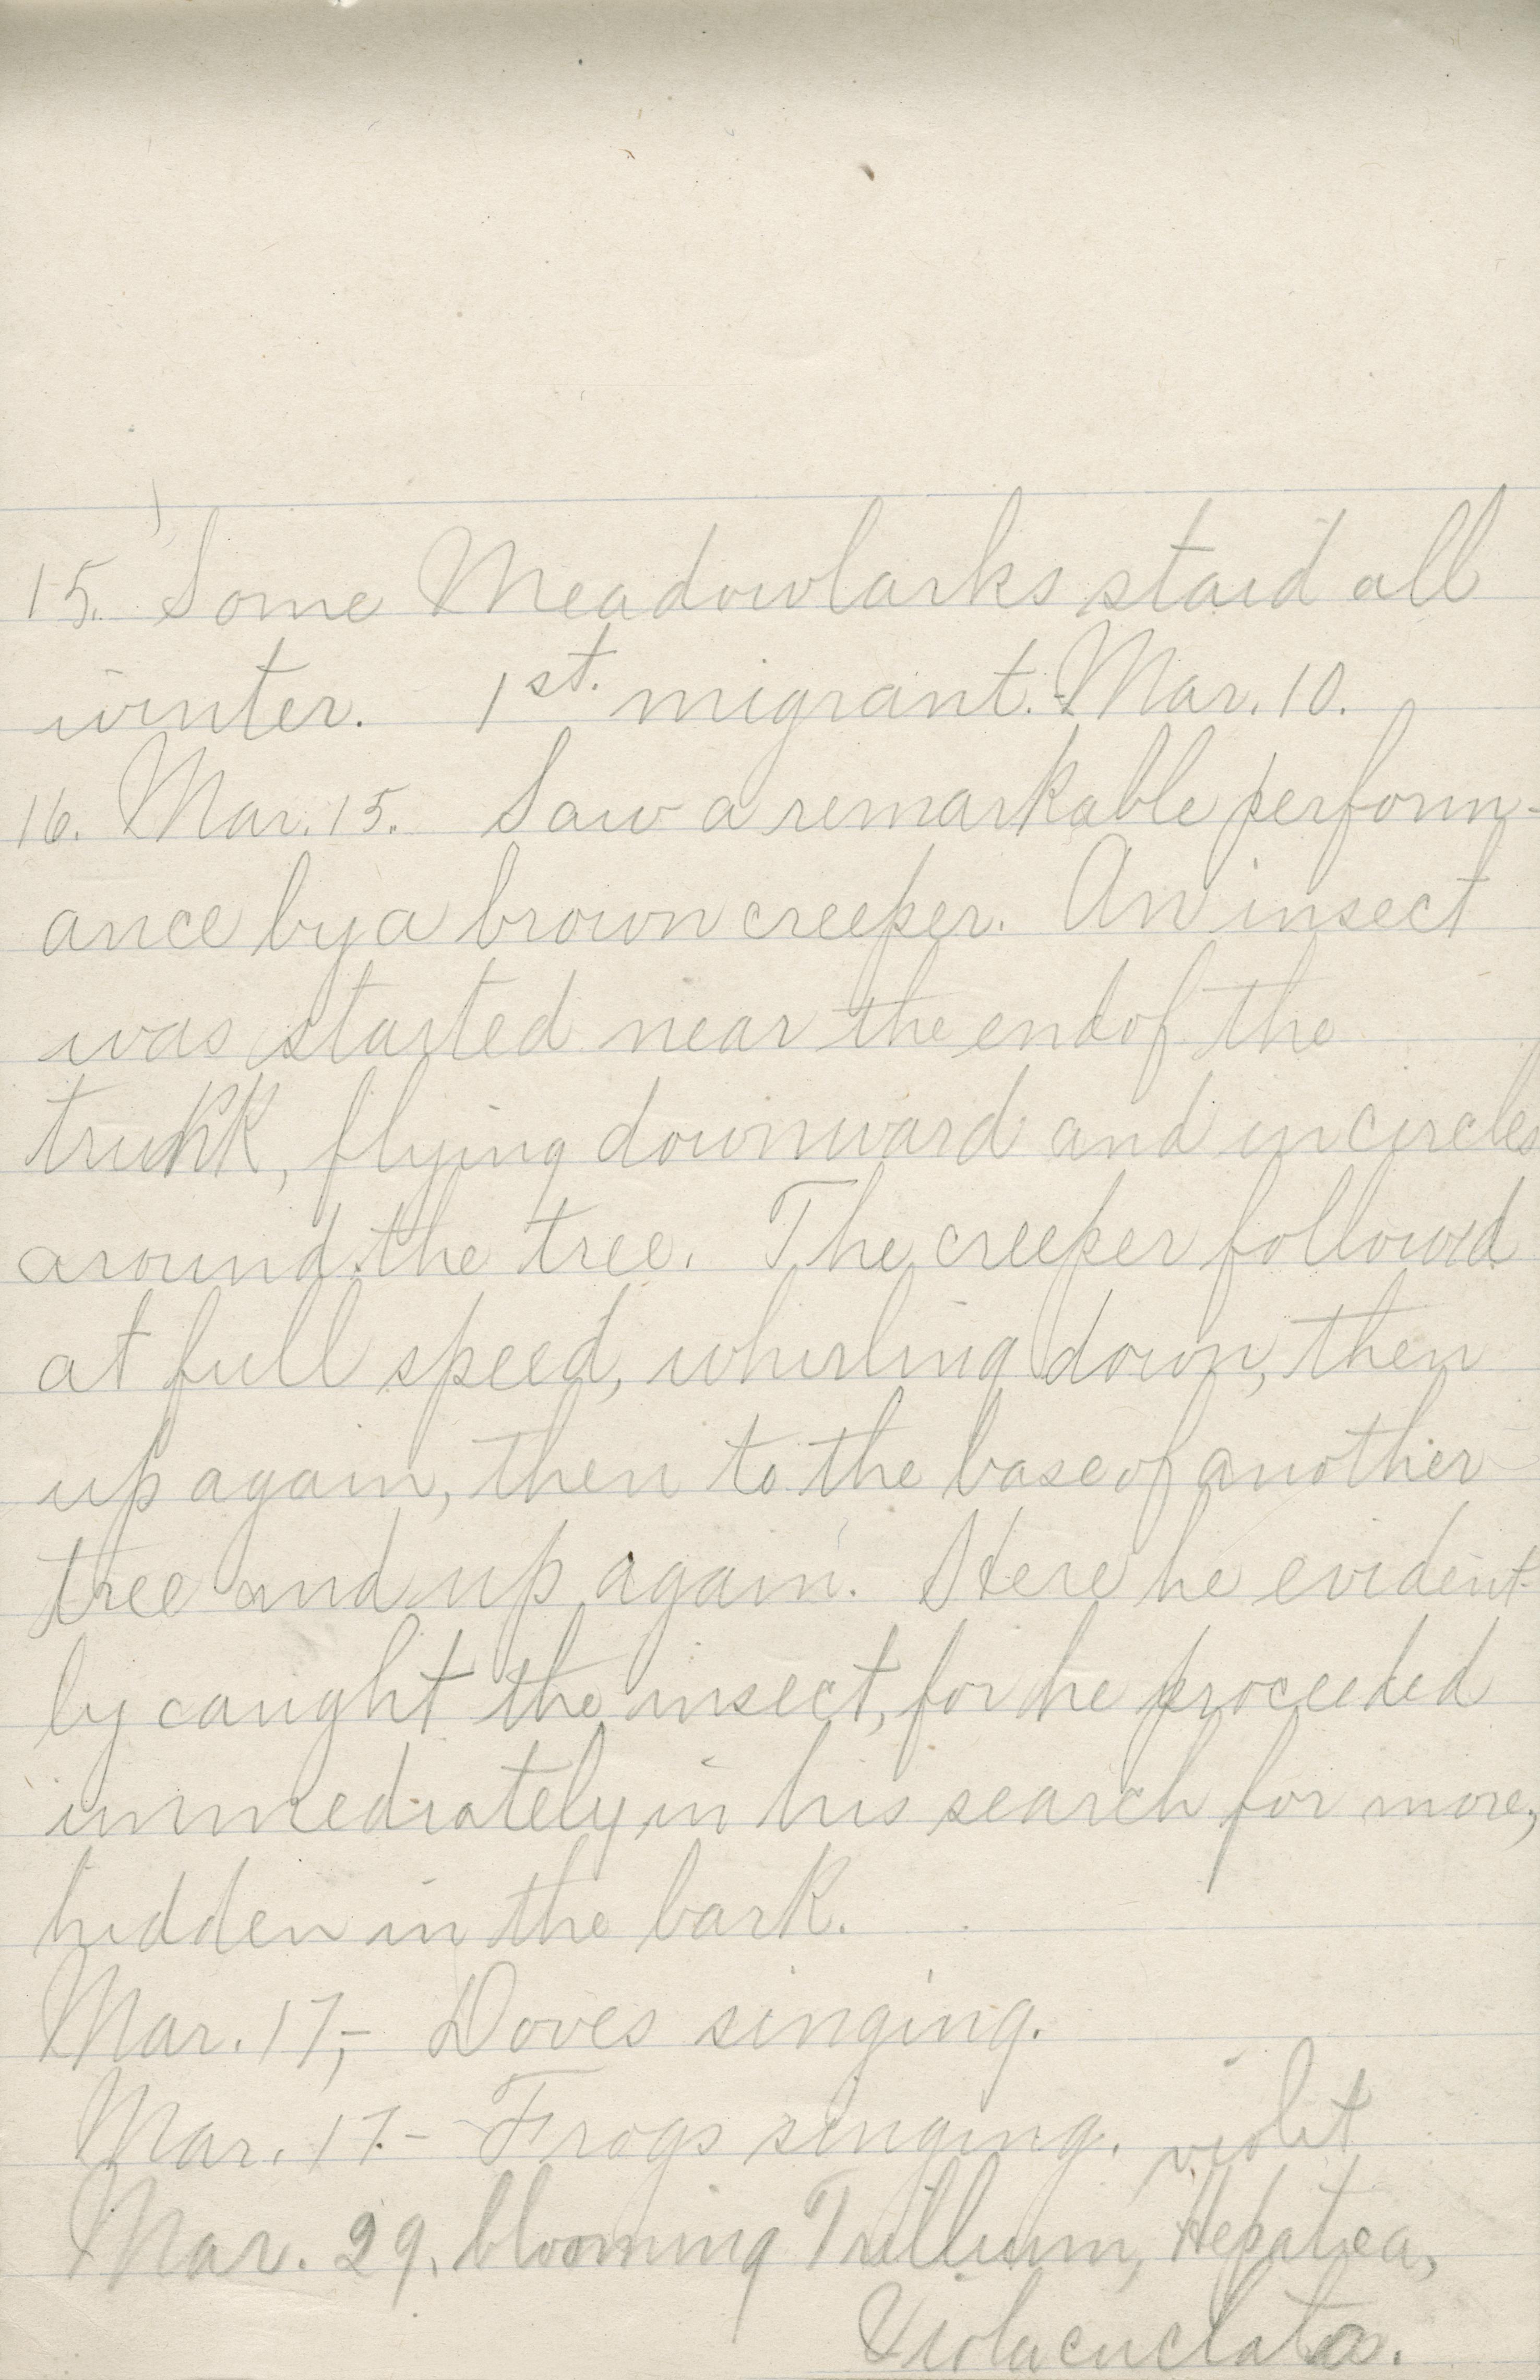 15. Some Meadowlarks staid all
winter. 1st. migrant. - Mar. 10.
16. Mar. 15. Saw a remarkable perform-
ance by a brown creeper. An insect
was started near the end of the
trunk, flying downward and in circles
around the tree. The creeper followed
at full speed, whirling down, then
up again, then to the base of another
tree and up again. Here he evident-
ly caught the insect, for he proceeded
immediately in his search for more,
hidden in the bark.
Mar. 17,- Doves singing.
Mar. 17.- Frogs singing.
violet
Mar. 29. blooming Trillium, Hepatica,
Viola cuclata.